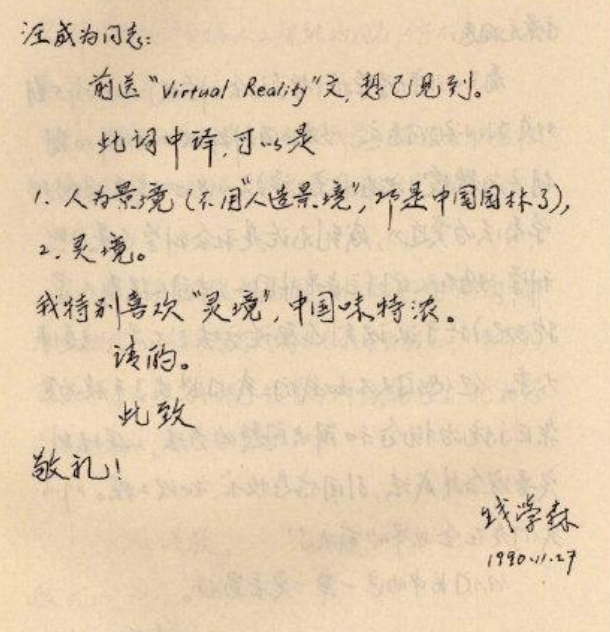 汪成为同志:
前送"Virtual Reality"文,想已见到。
此词中译,可以是
1. 人为景境(不用"人造景境",那是中国园林了),
2. 灵境。
我特别喜欢"灵境",中国味特浓。
请酌。
此致
敬礼!
钱学森
1990.11.27